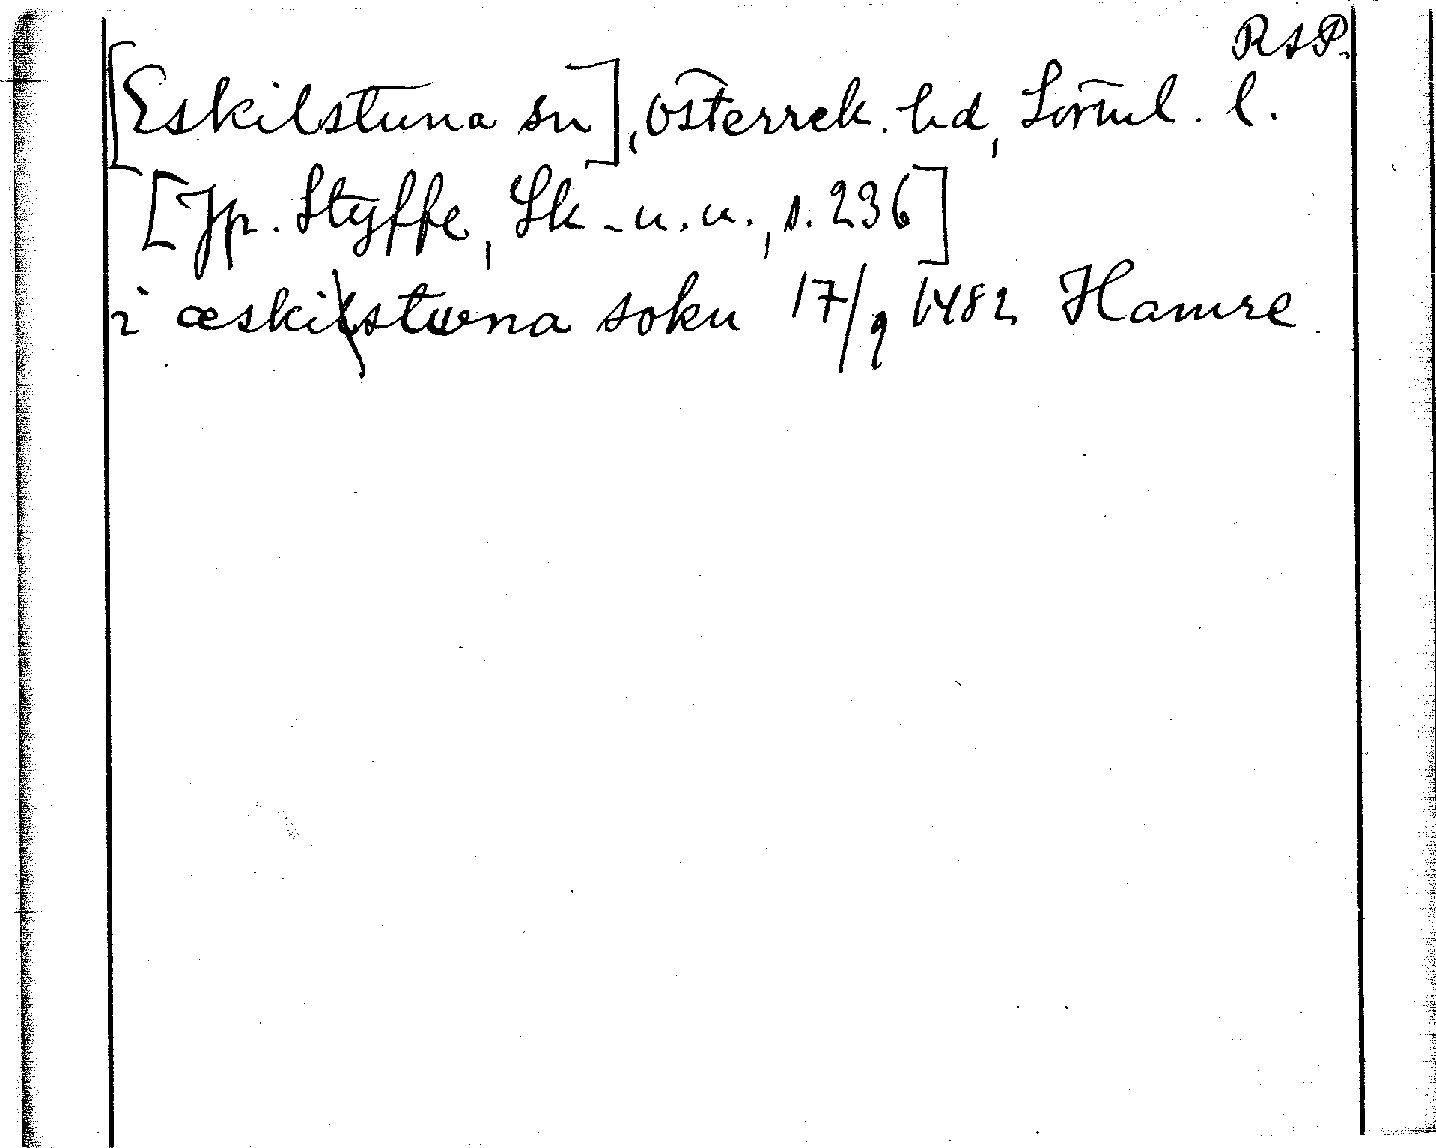 RAP.
[Eskilstuna sn], Österrek. hd, Sörml. l.
[Jfr. Styffe, Sk. u. u., s. 236]
i æskilstuna soku 17/9 1482 Hamre